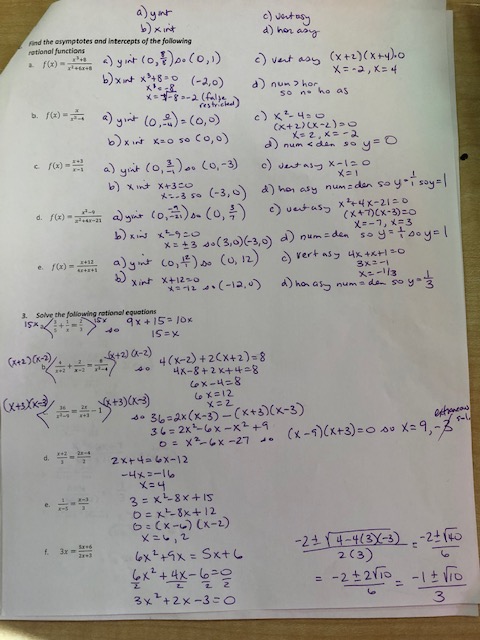 a) y int c) vert asy
b) x int d) hor asy
Find the asymptotes and intercepts of the following
rational functions
a. f(x) = (x³+8)/(x²+6x+8) a) y int (0, 8/8) so (0, 1) c) vert asy (x+2)(x+4)=0
x = -2, x = 4
b) x int x³+8=0 (-2,0)
x³ = -8
x = ³√-8 = -2 (false
restricted)
d) num > hor
so no ho as
b. f(x) = x/(x²-4) a) y int (0, 0/-4) = (0,0) c) x²-4=0
(x+2)(x-2)=0
x = 2, x = -2
b) x int x=0 so (0,0) d) num < den so y = 0
c. f(x) = (x+3)/(x-1) a) y int (0, 3/1) so (0, -3) c) vert asy x-1=0
x=1
b) x int x+3=0
x=-3 so (-3, 0) d) hor asy num=den so y=1/1 so y=1
d. f(x) = (x²-9)/(x²+4x-21) a) y int (0, -9/-21) so (0, 3/7) c) vert asy x²+4x-21=0
(x+7)(x-3)=0
x=-7, x=3
b) x int x²-9=0
x = ±3 so (3,0)(-3,0) d) num=den so y=1/1 so y=1
e. f(x) = (x+12)/(4x+x+1) a) y int (0, 12/1) so (0, 12) c) vert asy 4x+x+1=0
3x=-1
x=-1/3
b) x int x+12=0
x=-12 so (-12, 0) d) hor asy num=den so y=1/3
3. Solve the following rational equations
15x 3/5 + 1/x = 2/3 15x so 9x + 15 = 10x
15 = x
(x+2)(x-2) b. 4/(x+2) + 2/(x-2) = 8/(x²-4) (x+2)(x-2) so 4(x-2)+2(x+2)=8
4x-8+2x+4=8
6x-4=8
6x=12
x=2
(x+3)(x-3) 36/(x²-9) = 2x/(x+3) - 1 (x+3)(x-3)
so 36=2x(x-3) - (x+3)(x-3)
36=2x²-6x-x²+9
0 = x²-6x-27 so (x-9)(x+3)=0 so x=9, -3 extraneous
d. (x+2)/3 = (2x-4)/2 2x+4=6x-12
-4x=-16
x=4
e. 1/(x-5) = (x-3)/3 3 = x²-8x+15
0 = x²-8x+12
0 = (x-6)(x-2)
x = 6, 2
f. 3x = (5x+6)/(2x+3) 6x²+9x = 5x+6
6x²/2 + 4x/2 - 6/2 = 0/2
3x²+2x-3=0
(-2±√(4-4(3)(-3)))/(2(3)) = (-2±√40)/6
= (-2±2√10)/6 = (-1±√10)/3